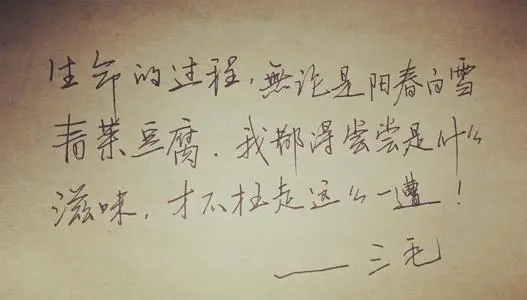 生命的过程，無论是阳春白雪
青菜豆腐．我都得尝尝是什么
滋味，才不枉走这么一遭！
——三毛